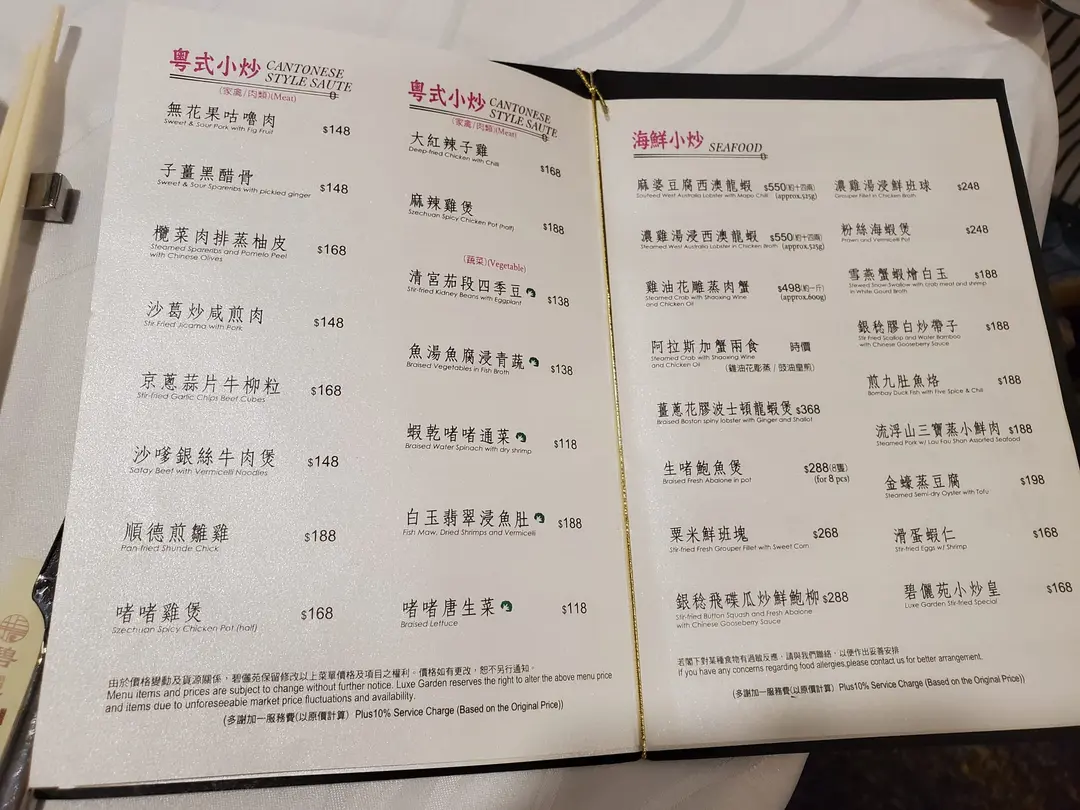 粵式小炒 CANTONESE STYLE SAUTE
(家禽/肉類)(Meat)
無花果咕嚕肉 $148
Sweet & Sour Pork with Fig Fruit
子薑黑醋骨 $148
Sweet & Sour Spareribs with pickled ginger
欖菜肉排蒸柚皮 $168
Steamed Spareribs and Pomelo Peel
with Chinese Olives
沙葛炒咸煎肉 $148
Stir Fried Jicama with Pork
京蔥蒜片牛柳粒 $168
Stir-fried Garlic Chips Beef Cubes
沙嗲銀絲牛肉煲 $148
Satay Beef with Vermicelli Noodles
順德煎雛雞 $188
Pan-fried Shunde Chick
啫啫雞煲 $168
Szechuan Spicy Chicken Pot (half)
粵式小炒 CANTONESE STYLE SAUTE
(家禽/肉類)(Meat)
大紅辣子雞 $168
Deep-fried Chicken with Chili
麻辣雞煲 $188
Szechuan Spicy Chicken Pot (half)
(蔬菜)(Vegetable)
清宮茄段四季豆 $138
Stir-fried Kidney Beans with Eggplant
魚湯魚腐浸青蔬 $138
Braised Vegetables in Fish Broth
蝦乾啫啫通菜 $118
Braised Water Spinach with dry shrimp
白玉翡翠浸魚肚 $188
Fish Maw, Dried Shrimps and Vermicelli
啫啫唐生菜 $118
Braised Lettuce
由於價格變動及貨源關係，碧儷苑保留修改以上菜單價格及項目之權利。價格如有更改，恕不另行通知。
Menu items and prices are subject to change without further notice. Luxe Garden reserves the right to alter the above menu price
and items due to unforeseeable market price fluctuations and availability.
(多謝加一服務費(以原價計算) Plus10% Service Charge (Based on the Original Price))
海鮮小炒 SEAFOOD
麻婆豆腐西澳龍蝦 $550(約十四兩)
Sauteed West Australia Lobster with Mapu Chili (approx.525g)
濃雞湯浸西澳龍蝦 $550(約十四兩)
Steamed West Australia Lobster in Chicken Broth (approx.525g)
雞油花雕蒸肉蟹 $498(約一斤)
Steamed Crab with Shaoxing Wine (approx.600g)
and Chicken Oil
阿拉斯加蟹兩食 時價
Steamed Crab with Shaoxing Wine
and Chicken Oil (雞油花彫蒸 / 豉油皇煎)
薑蔥花膠波士頓龍蝦煲 $368
Braised Boston spiny lobster with Ginger and Shallot
生啫鮑魚煲 $288(8隻)
Braised Fresh Abalone in pot (for 8 pcs)
粟米鮮班塊 $268
Stir-fried Fresh Grouper Fillet with Sweet Corn
銀稔飛碟瓜炒鮮鮑柳 $288
Stir-fried Button Squash and Fresh Abalone
with Chinese Gooseberry Sauce
濃雞湯浸鮮班球 $248
Grouper Fillet in Chicken Broth
粉絲海蝦煲 $248
Prawn and Vermicelli Pot
雪燕蟹蝦燴白玉 $188
Stewed Snow Swallow with crab meat and shrimp
in White Gourd Broth
銀稔膠白炒帶子 $188
Stir fried Scallop and Water Bamboo
with Chinese Gooseberry Sauce
煎九肚魚烙 $188
Bombay Duck Fish with Five Spice & Chili
流浮山三寶蒸小鮮肉 $188
Steamed Pork w/ Lau Fau Shan Assorted Seafood
金蠔蒸豆腐 $198
Steamed Semi-dry Oyster with Tofu
滑蛋蝦仁 $168
Stir-fried Eggs w/ Shrimp
碧儷苑小炒皇 $168
Luxe Garden Stir-fried Special
若閣下對某種食物有過敏反應，請與我們聯絡，以便作出妥善安排
If you have any concerns regarding food allergies,please contact us for better arrangement.
(多謝加一服務費(以原價計算) Plus10% Service Charge (Based on the Original Price))